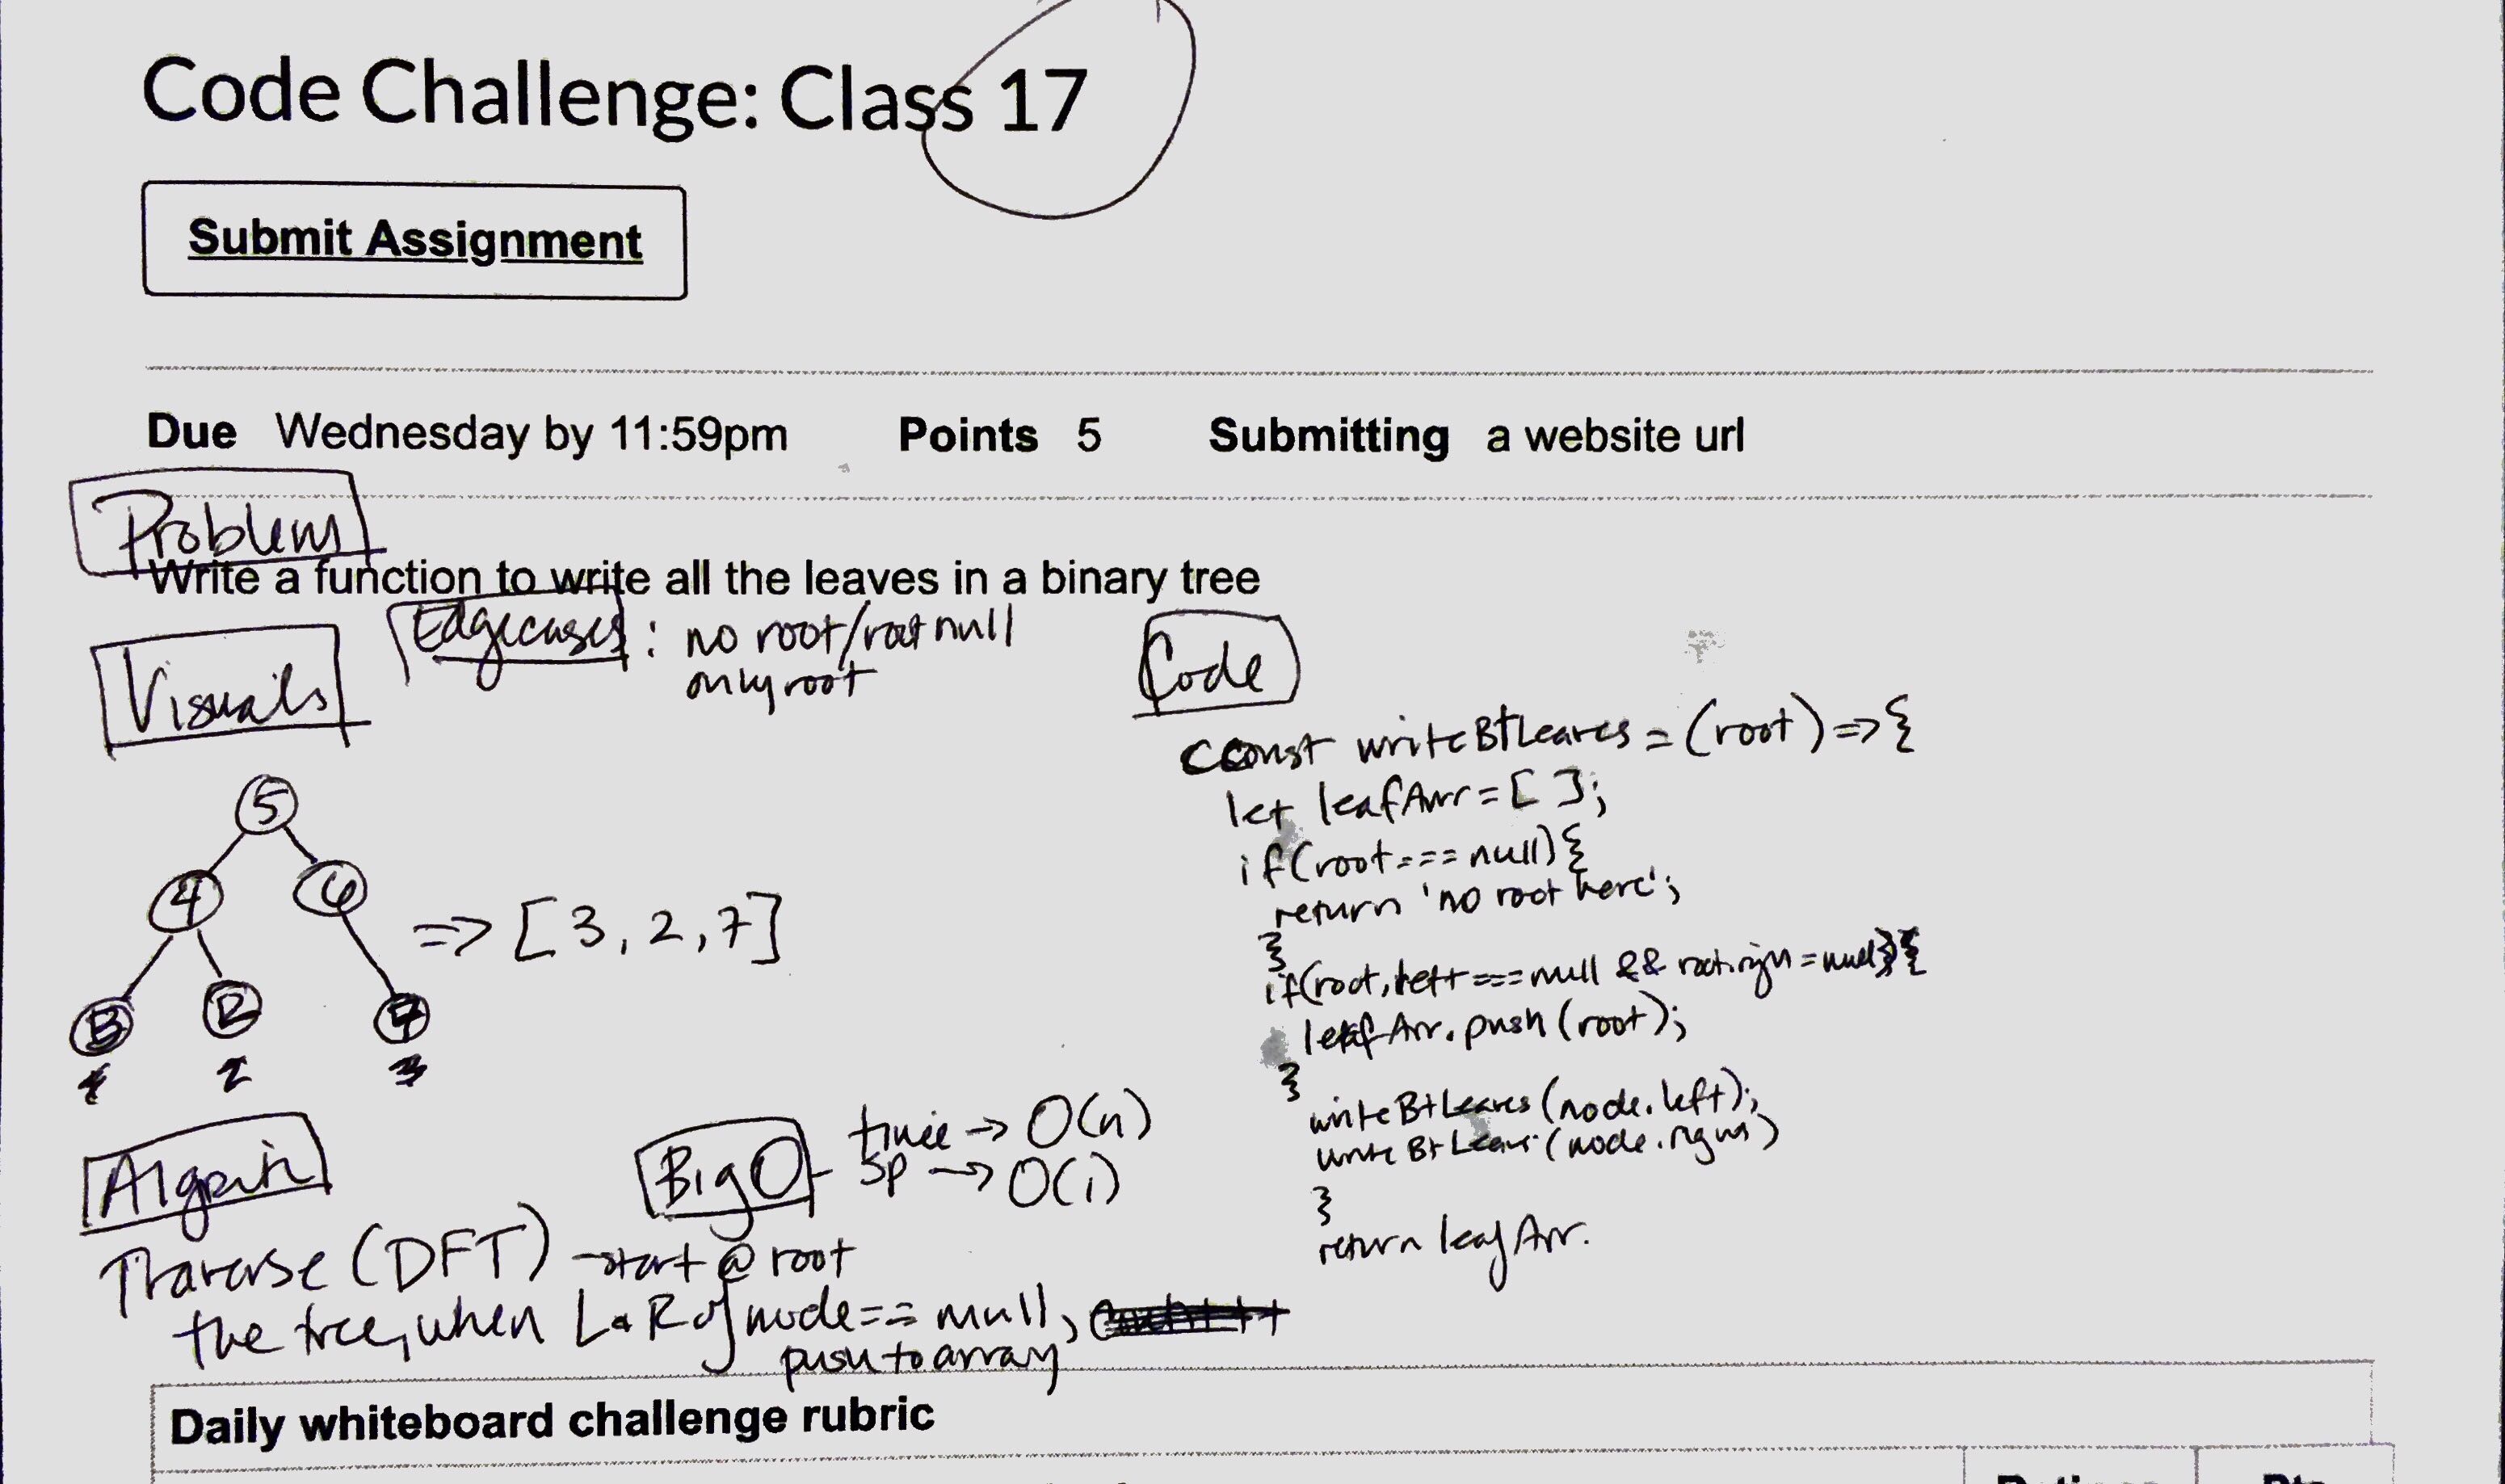 Code Challenge: Class 17
Submit Assignment
Due Wednesday by 11:59pm Points 5 Submitting a website url
Problem
Write a function to write all the leaves in a binary tree
Edgecases: no root/root null
only root
Visuals
5
4 6
3 2 7
=> [3, 2, 7]
2 3
Algorith
Traverse (DFT) start @ root
the tree, when L & R of node == null,
push to array
Big O time -> O(n)
sp -> O(1)
Code
const writeBtLeaves = (root) => {
let leafArr = [ ];
if(root === null){
return 'no root here';
}
if(root.left === null && root.righ = null){
leafArr.push(root);
}
writeBtLeaves(node.left);
writeBtLeaves(node.right)
}
return leafArr.
Daily whiteboard challenge rubric